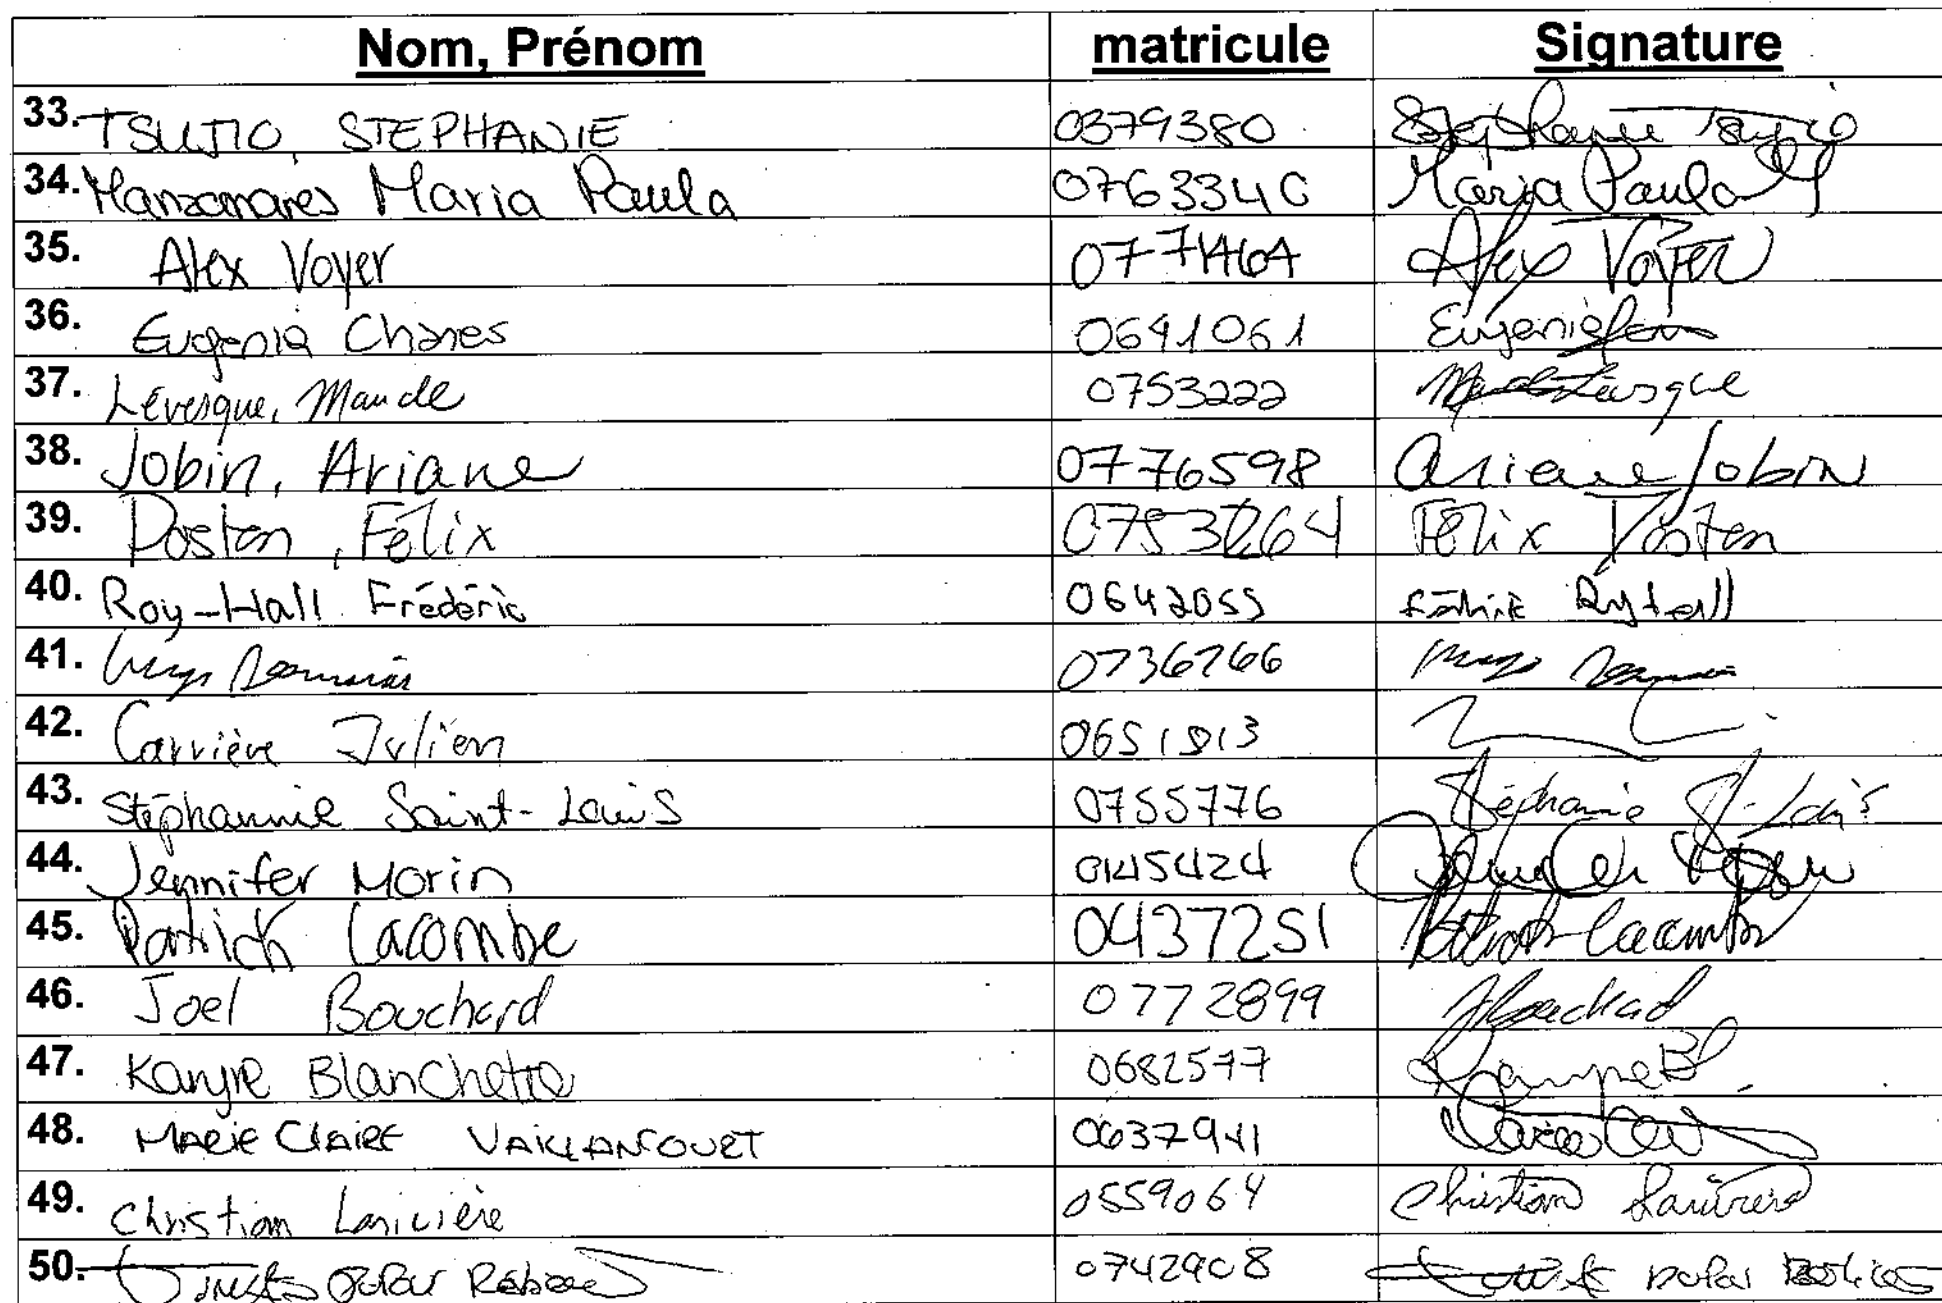 Nom, Prénom matricule Signature
33. TSUJIO, STEPHANIE 0379380 Stephanie Tsujio
34. Manzanares Maria Paula 0763340 Maria Paula M
35. Alex Voyer 0771464 Alex Voyer
36. Eugenia Chanes 0641061 Eugenia
37. Lévesque, Maude 0753222 Maude Lévesque
38. Jobin, Ariane 0776598 Ariane Jobin
39. Posten, Félix 0753264 Félix Posten
40. Roy-Hall Frédéric 0642055 Frédéric Roy-Hall
41. 0736766
42. Carrière Julien 0651813
43. Stéphannie Saint-Louis 0755776 Stéphanie St-Louis
44. Jennifer Morin 0145424
45. Patrick Lacombe 0437251 Patrick Lacombe
46. Joel Bouchard 0772899 JBouchard
47. Kanyre Blanchette 0682577
48. MARIE CLAIRE VAILLANCOURT 0637941
49. Christian Larivière 0559064 Christian Larivière
50. 0742908